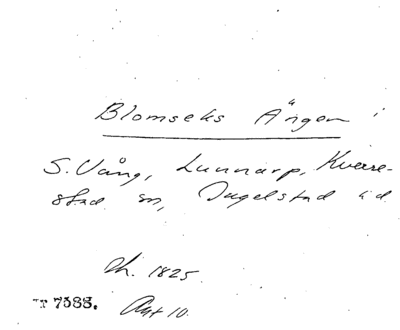 Blomseks Ängen i
S. Vång, Lunnarp, Kverre-
stad sn, Ingelstad hd.
Uh. 1825.
nr 7388. Akt 10.